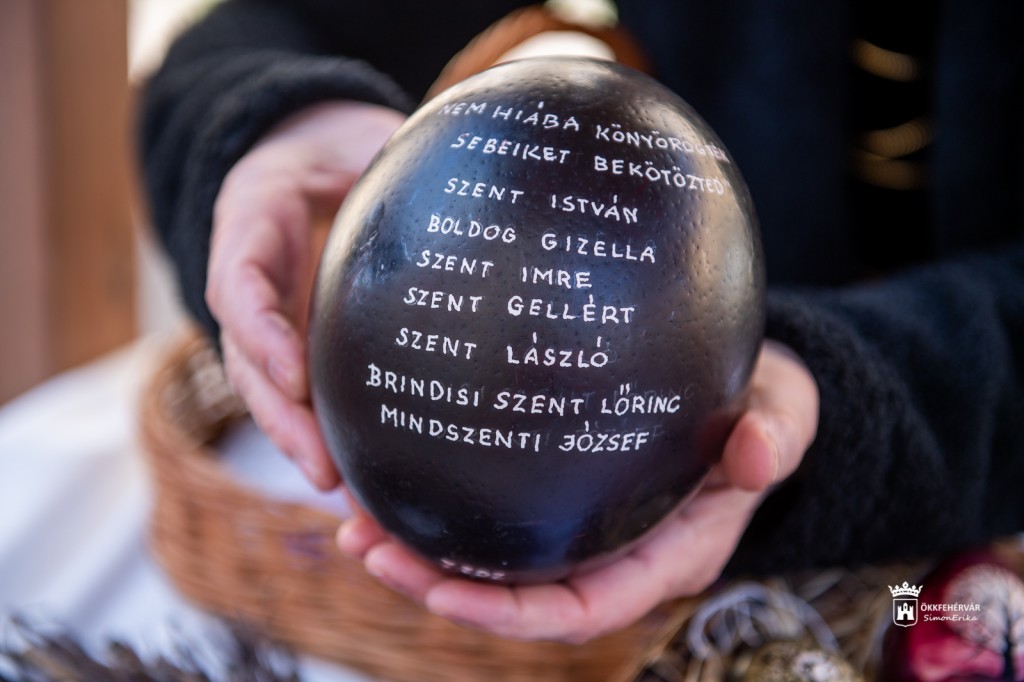 NEM HIÁBA
SEBEIKET BEKÖTÖZTED"
SZENT ISTVÁN
BOLDOG GIZELLA
SZENT IMRE
SZENT GELLÉRT
SZENT LÁSZLÓ
BRINDISI SZENT LŐRINC
MINDSZENTI JÓZSEF
ÖKKFEHÉRVÁR
SimonErika